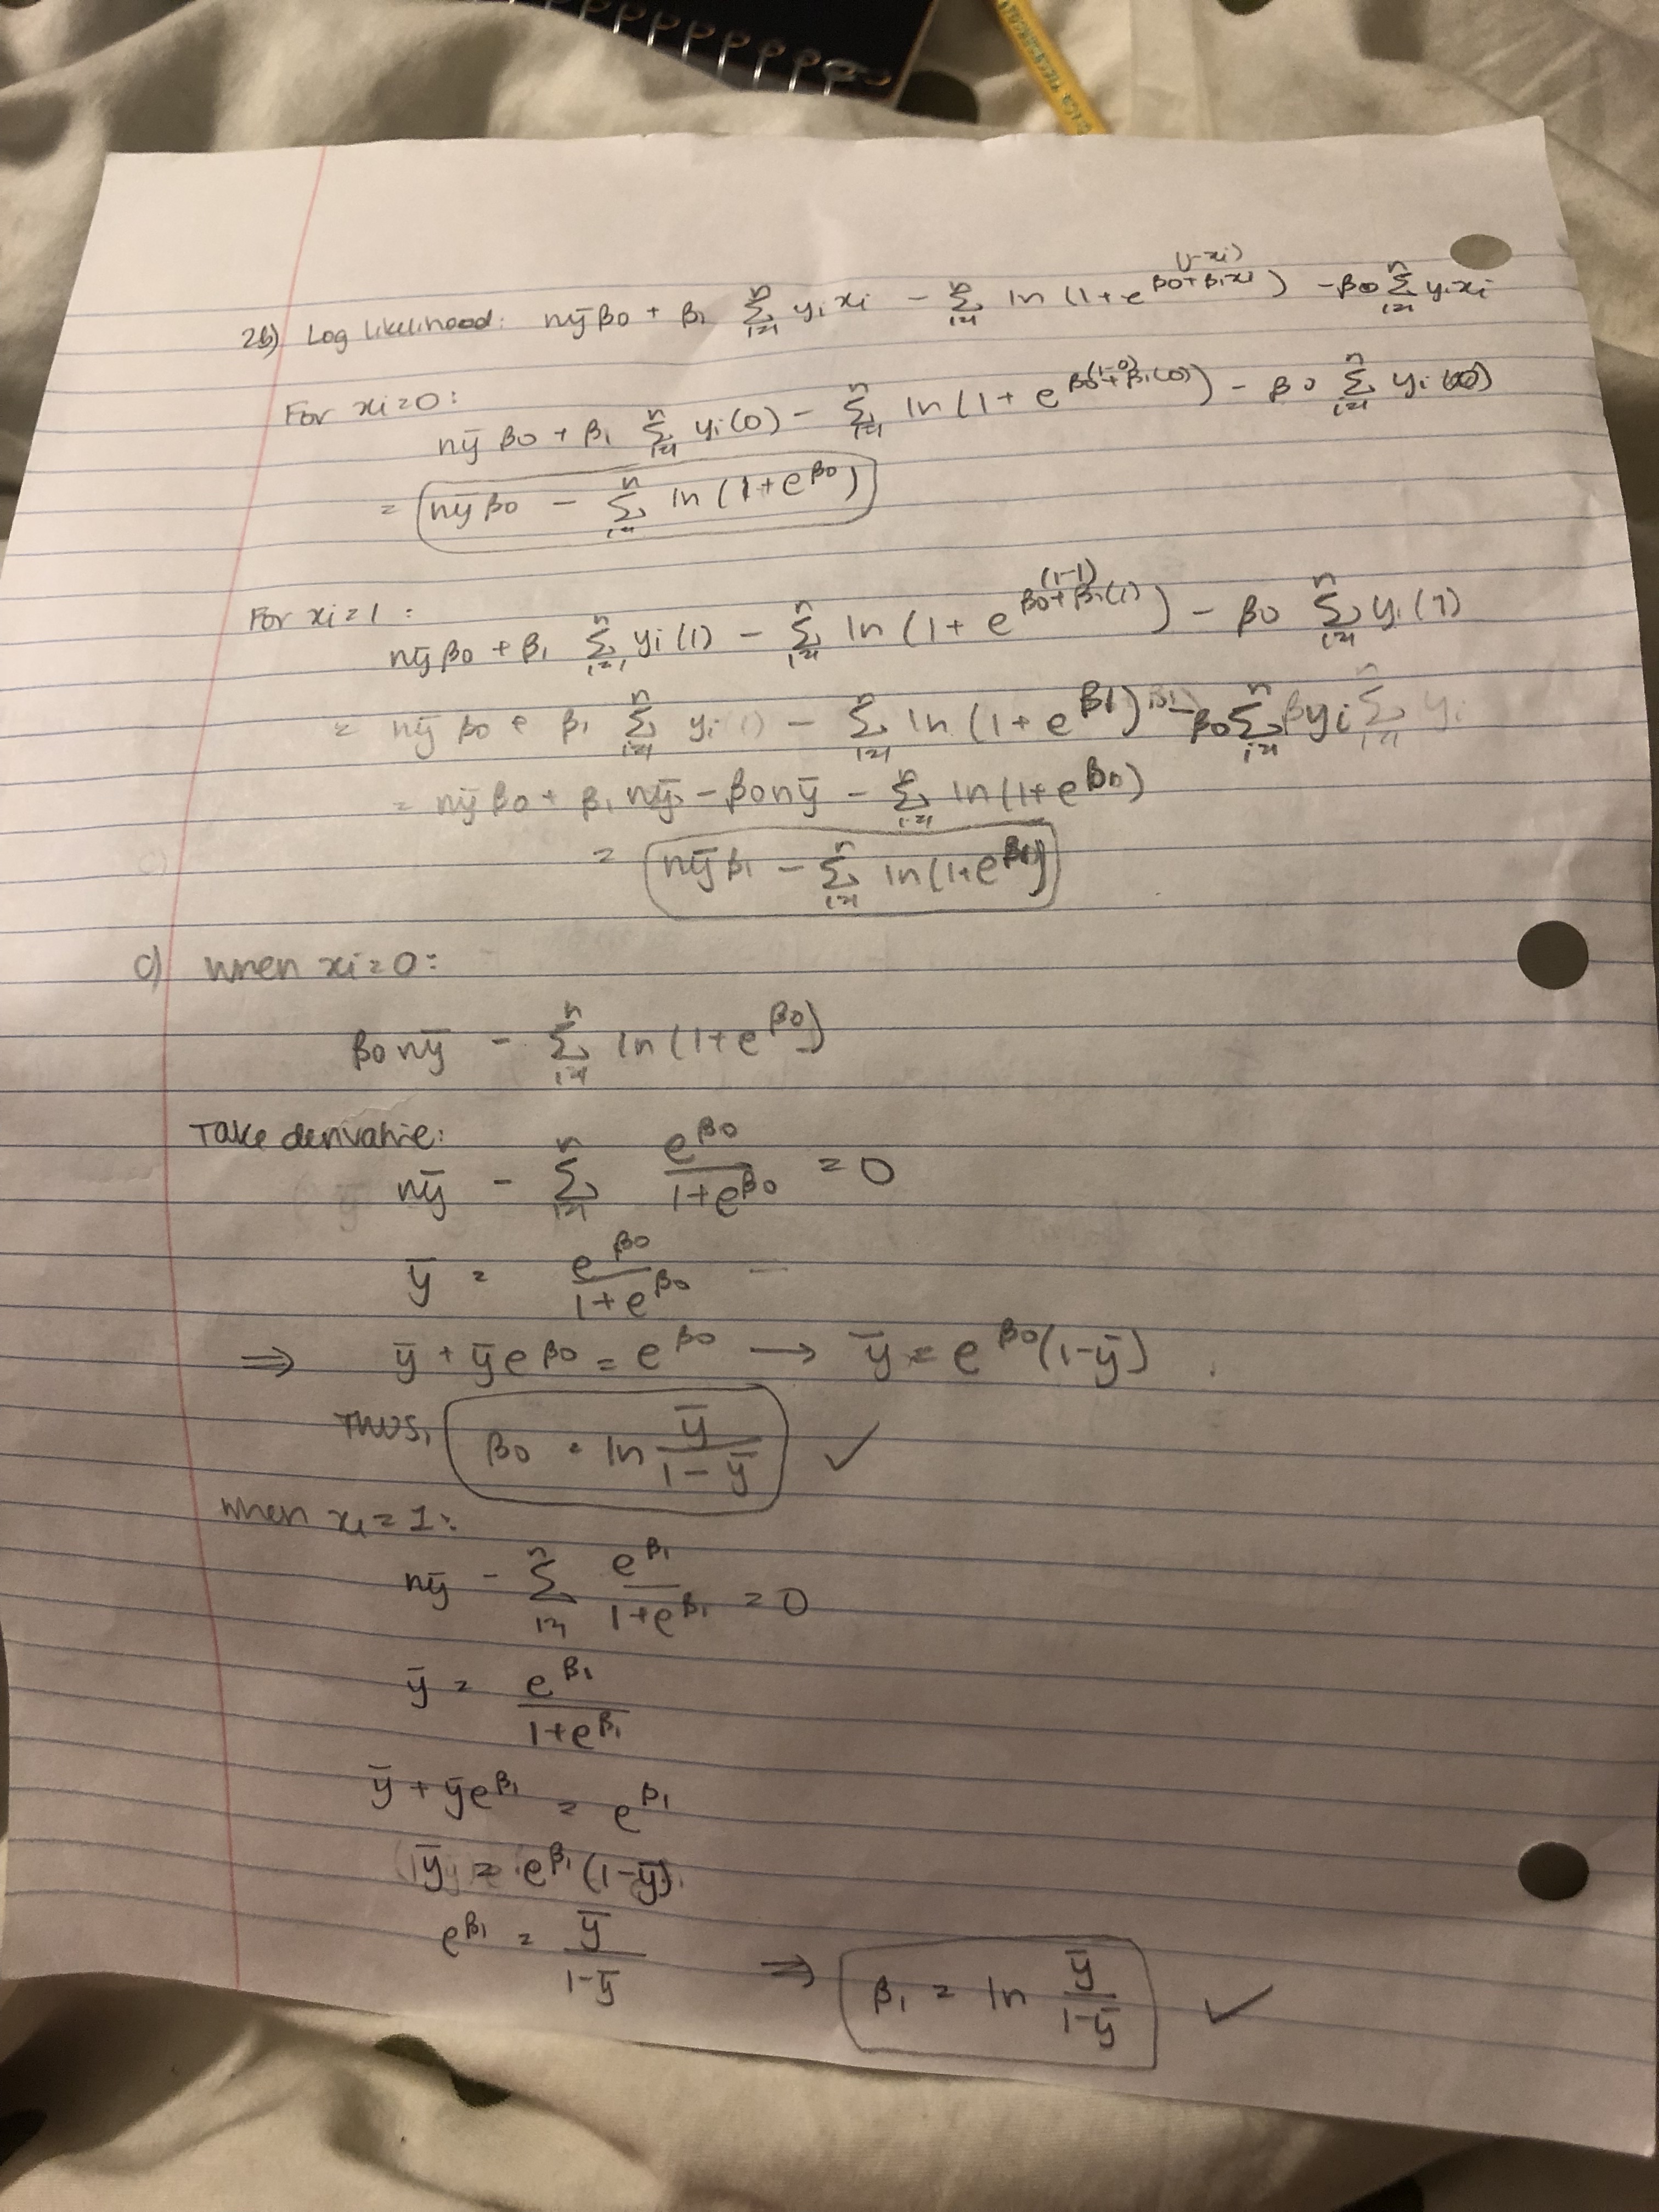 2b) Log likelihood: nȳβ0 + β1 Σ_{i=1}^{n} yi xi − Σ_{i=1}^{n} ln(1+e^{β0(1-xi)+β1xi}) − β0 Σ_{i=1}^{n} yixi
For xi=0:
nȳβ0 + β1 Σ_{i=1}^{n} yi(0) − Σ_{i=1}^{n} ln(1+e^{β0(1-0)+β1(0)}) − β0 Σ_{i=1}^{n} yi(0)
= nȳβ0 − Σ_{i=1}^{n} ln(1+e^{β0})
For xi=1:
nȳβ0 + β1 Σ_{i=1}^{n} yi(1) − Σ_{i=1}^{n} ln(1+e^{β0(1-1)+β1(1)}) − β0 Σ_{i=1}^{n} yi(1)
= nȳβ0 + β1 Σ_{i=1}^{n} yi − Σ_{i=1}^{n} ln(1+e^{β1}) − β0 Σ_{i=1}^{n} yi
= nȳβ0 + β1nȳ − β0nȳ − Σ_{i=1}^{n} ln(1+e^{β0})
= nȳβ1 − Σ_{i=1}^{n} ln(1+e^{β1})
c) when xi=0:
β0nȳ − Σ_{i=1}^{n} ln(1+e^{β0})
Take derivative:
nȳ − Σ_{i=1}^{n} e^{β0}/(1+e^{β0}) = 0
ȳ = e^{β0}/(1+e^{β0})
⇒ ȳ + ȳe^{β0} = e^{β0} → ȳ = e^{β0}(1-ȳ)
Thus, β0 = ln ȳ/(1-ȳ) ✓
when xi=1:
nȳ − Σ_{i=1}^{n} e^{β1}/(1+e^{β1}) = 0
ȳ = e^{β1}/(1+e^{β1})
ȳ + ȳe^{β1} = e^{β1}
ȳ = e^{β1}(1-ȳ)
e^{β1} = ȳ/(1-ȳ) ⇒ β1 = ln ȳ/(1-ȳ) ✓